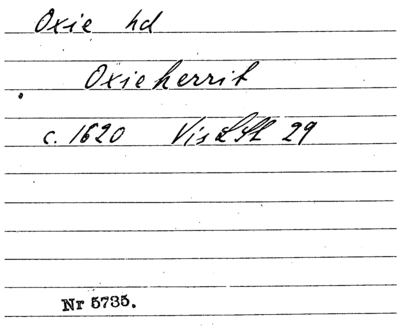 Oxie hd
Oxieherrit
c. 1620 Vis LSt 29
Nr 5735.